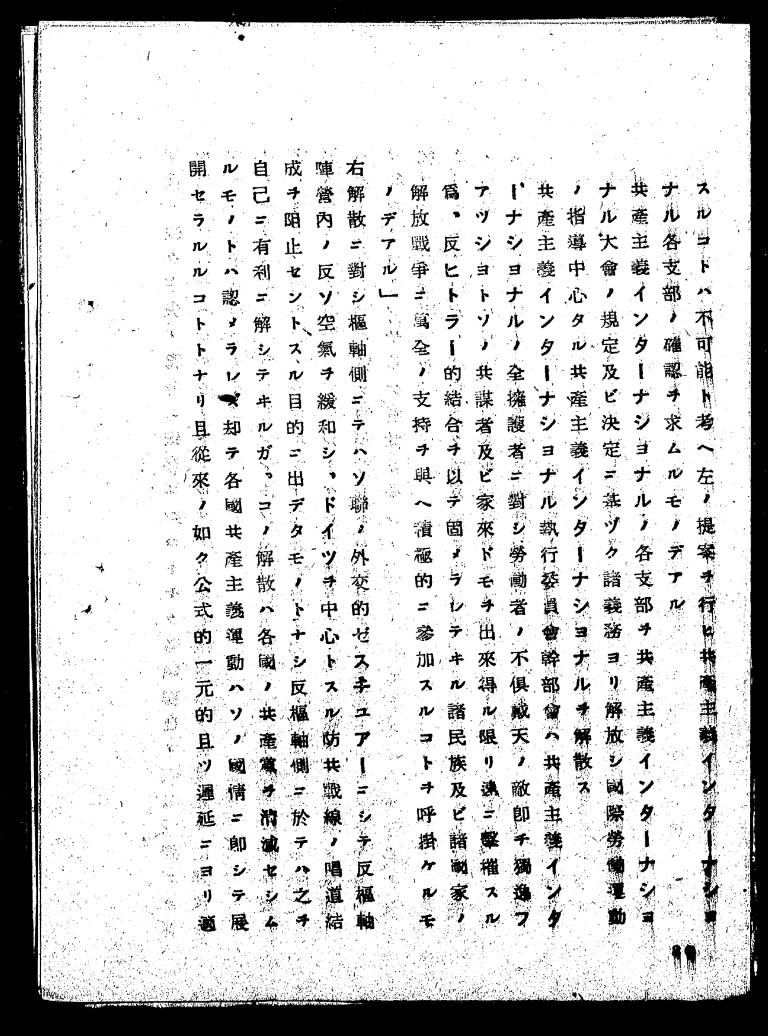 スルコトハ不可能ト考ヘ左ノ提案ヲ行ヒ共產主義インターナショ
ナル各支部ノ確認ヲ求ムルモノデアル
共產主義インターナショナルノ各支部ヲ共產主義インターナショ
ナル大會ノ規定及ビ決定ニ基ヅク諸義務ヨリ解放シ國際勞働運動
ノ指導中心タル共產主義インターナショナルヲ解散ス
共產主義インターナショナル執行委員會幹部會ハ共產主義インタ
ーナショナルノ全擁護者ニ對シ勞働者ノ不俱戴天ノ敵卽チ獨逸フ
アツショトソノ共謀者及ビ家來ドモヲ出來得ル限リ速ニ擊摧スル
爲、反ヒトラー的結合ヲ以テ固メラレテヰル諸民族及ビ諸國家ノ
解放戰爭ニ萬全ノ支持ヲ與ヘ積極的ニ參加スルコトヲ呼掛ケルモ
ノデアル」
右解散ニ對シ樞軸側ニテハソ聯ノ外交的ゼスチユアーニシテ反樞軸
陣營內ノ反ソ空氣ヲ緩和シ、ドイツヲ中心トスル防共戰線ノ唱道結
成ヲ阻止セントスル目的ニ出デタモノトナシ反樞軸側ニ於テハ之ヲ
自己ニ有利ニ解シテヰルガ、コノ解散ハ各國ノ共產黨ヲ消滅セシム
ルモノトハ認メラレズ却テ各國共產主義運動ハソノ國情ニ卽シテ展
開セラルルコトトナリ且從來ノ如ク公式的一元的且ツ遲延ニヨリ適